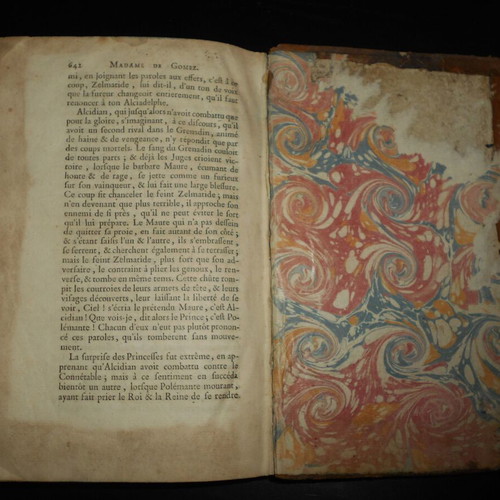 642 MADAME DE GOMEZ.
mi, en joignant les paroles aux effets, c'est à ce
coup, Zelmatide, lui dit-il, d'un ton de voix
que la fureur changeoit entierement, qu'il faut
renoncer à ton Alciadelphe.
Alcidian, qui jusqu'alors n'avoit combattu que
pour la gloire, s'imaginant, à ce discours, qu'il
avoit un second rival dans le Grenadin, animé
de haine & de vengeance, n'y répondit que par
des coups mortels. Le sang du Grenadin couloit
de toutes parts; & déjà les Juges crioient vic-
toire, lorsque le barbare Maure, écumant de
honte & de rage, se jette comme un furieux
sur son vainqueur, & lui fait une large blessure.
Ce coup fit chanceler le feint Zelmatide; mais
n'en devenant que plus terrible, il approche son
ennemi de si près, qu'il ne peut éviter le sort
qu'il lui prépare. Le Maure qui n'a pas dessein
de quitter sa proie, en fait autant de son côté;
& s'étant saisis l'un & l'autre, ils s'embrassent,
se serrent, & cherchent également à se terrasser;
mais le feint Zelmatide, plus fort que son ad-
versaire, le contraint à plier les genoux, le ren-
verse, & tombe en même tems. Cette chûte rom-
pit les courroies de leurs armets de tête, & leurs
visages découverts, leur laissant la liberté de se
voir, Ciel! s'écria le prétendu Maure, c'est Al-
cidian! Que vois-je, dit alors le Prince; c'est Po-
lémante! Chacun d'eux n'eut pas plutôt pronon-
cé ces paroles, qu'ils tomberent sans mouve-
ment.
La surprise des Princesses fut extrême, en ap-
prenant qu'Alcidian avoit combattu contre le
Connétable; mais à ce sentiment en succéda
bientôt un autre, lorsque Polémante mourant,
ayant fait prier le Roi & la Reine de se rendre